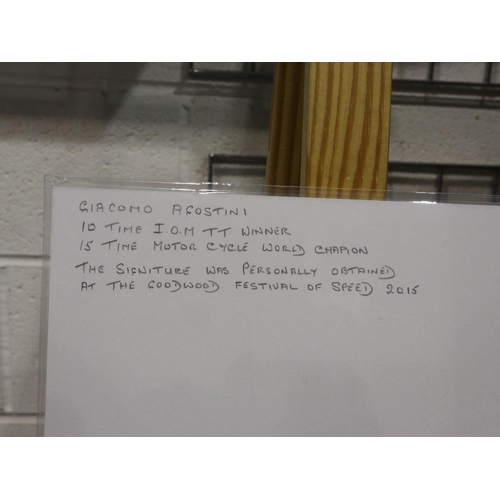 GIACOMO AGOSTINI
10 TIME I O.M TT WINNER
15 TIME MOTOR CYCLE WORLD CHAPION
THE SIGNITURE WAS PERSONALLY OBTAINED
AT THE GOODWOOD FESTIVAL OF SPEED 2015